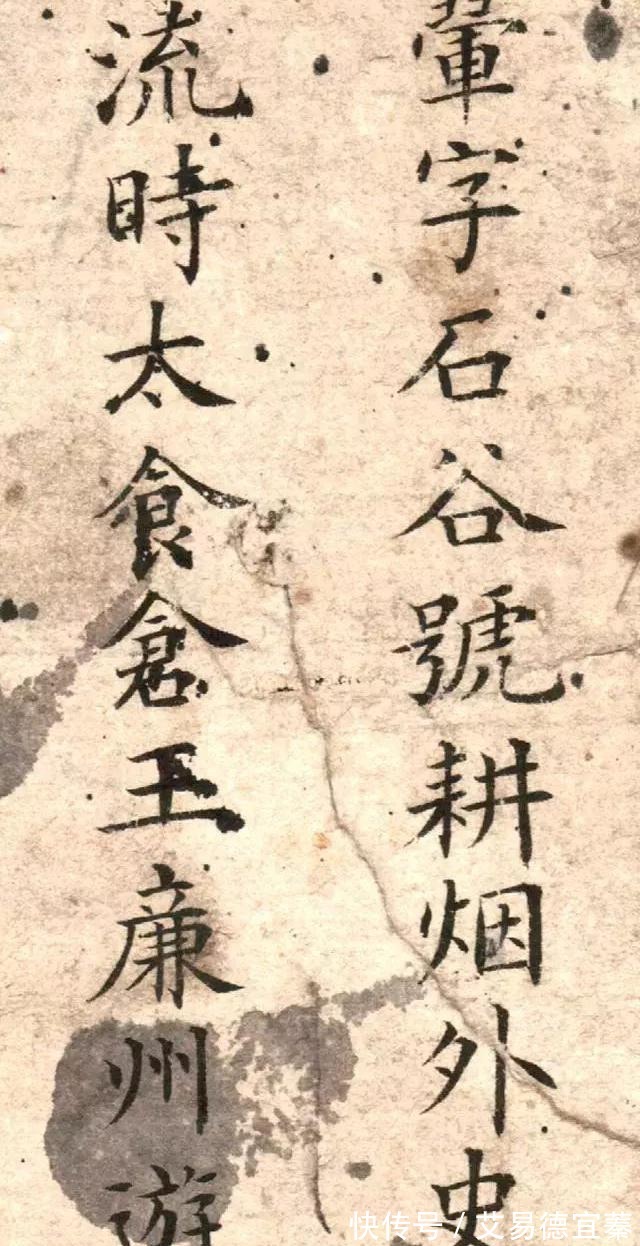 翬字石谷號耕烟外史
流時太食倉王廉州遊
快传号/艾易德宜蓁